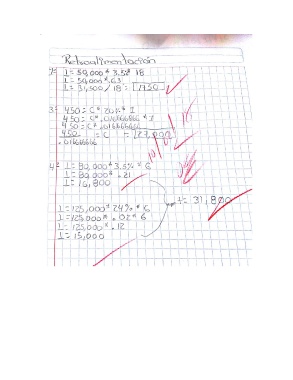 Retroalimentación
I = 50,000 * 3.5% * 18
I = 50,000 * .63
I = 31,500 / 18 = 1750
3= 450 = C * 20% * 1
450 = C * .016666666 * 1
450 = C * .016666666
450 = C = 27,000
.01666666
4= I = 80,000 * 3.5% * 6
I = 80,000 * .21
I = 16,800
I = 31,800
I = 125,000 * 24% * 6
I = 125,000 * .02 * 6
I = 125,000 * .12
I = 15,000